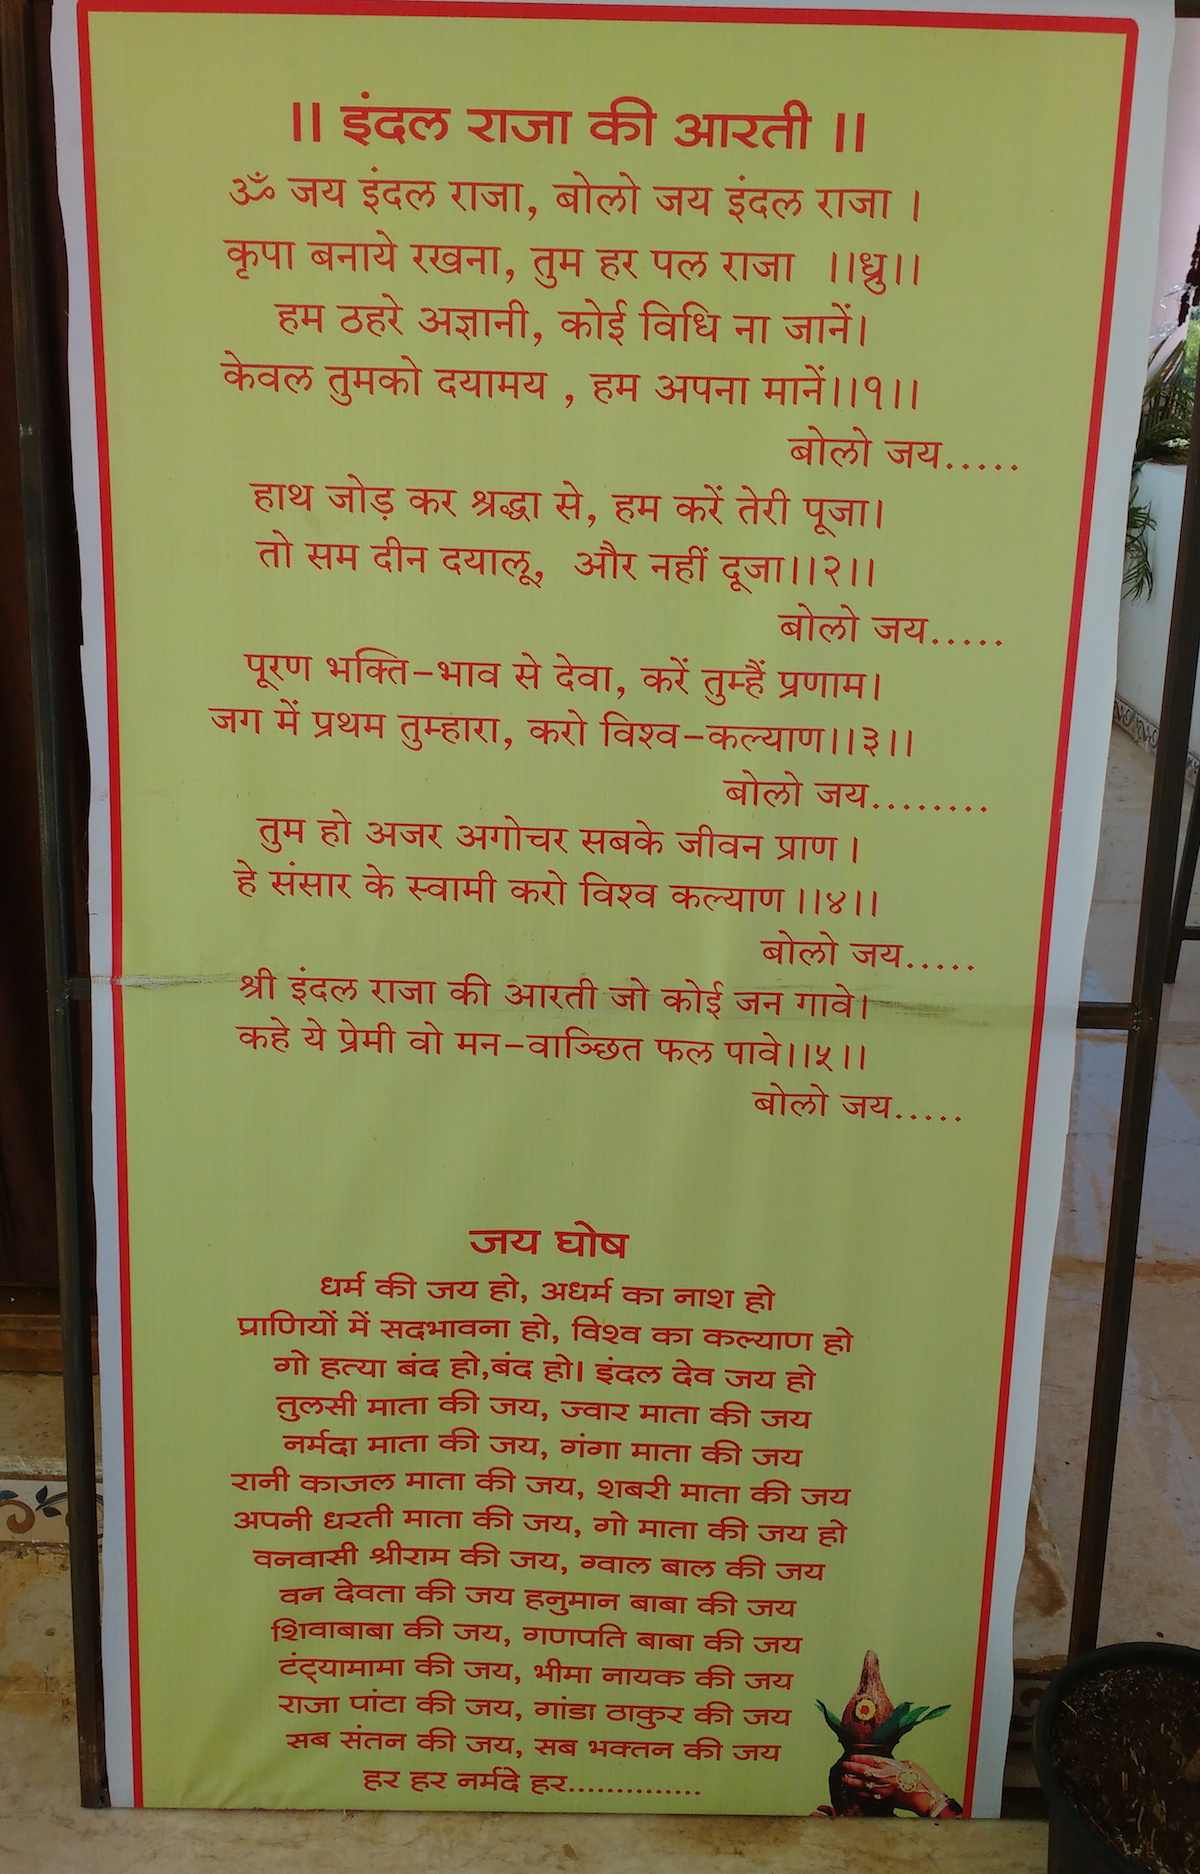 ।। इंदल राजा की आरती ।।
ॐ जय इंदल राजा, बोलो जय इंदल राजा ।
कृपा बनाये रखना, तुम हर पल राजा ।।ध्रु।।
हम ठहरे अज्ञानी, कोई विधि ना जानें।
केवल तुमको दयामय , हम अपना मानें।।१।।
बोलो जय.....
हाथ जोड़ कर श्रद्धा से, हम करें तेरी पूजा।
तो सम दीन दयालू, और नहीं दूजा।।२।।
बोलो जय.....
पूरण भक्ति-भाव से देवा, करें तुम्हैं प्रणाम।
जग में प्रथम तुम्हारा, करो विश्व-कल्याण।।३।।
बोलो जय........
तुम हो अजर अगोचर सबके जीवन प्राण ।
हे संसार के स्वामी करो विश्व कल्याण ।।४।।
बोलो जय.....
श्री इंदल राजा की आरती जो कोई जन गावे।
कहे ये प्रेमी वो मन-वाञ्छित फल पावे।।५।।
बोलो जय.....
जय घोष
धर्म की जय हो, अधर्म का नाश हो
प्राणियों में सदभावना हो, विश्व का कल्याण हो
गो हत्या बंद हो,बंद हो। इंदल देव जय हो
तुलसी माता की जय, ज्वार माता की जय
नर्मदा माता की जय, गंगा माता की जय
रानी काजल माता की जय, शबरी माता की जय
अपनी धरती माता की जय, गो माता की जय हो
वनवासी श्रीराम की जय, ग्वाल बाल की जय
वन देवता की जय हनुमान बाबा की जय
शिवाबाबा की जय, गणपति बाबा की जय
टंट्यामामा की जय, भीमा नायक की जय
राजा पांटा की जय, गांडा ठाकुर की जय
सब संतन की जय, सब भक्तन की जय
हर हर नर्मदे हर..............